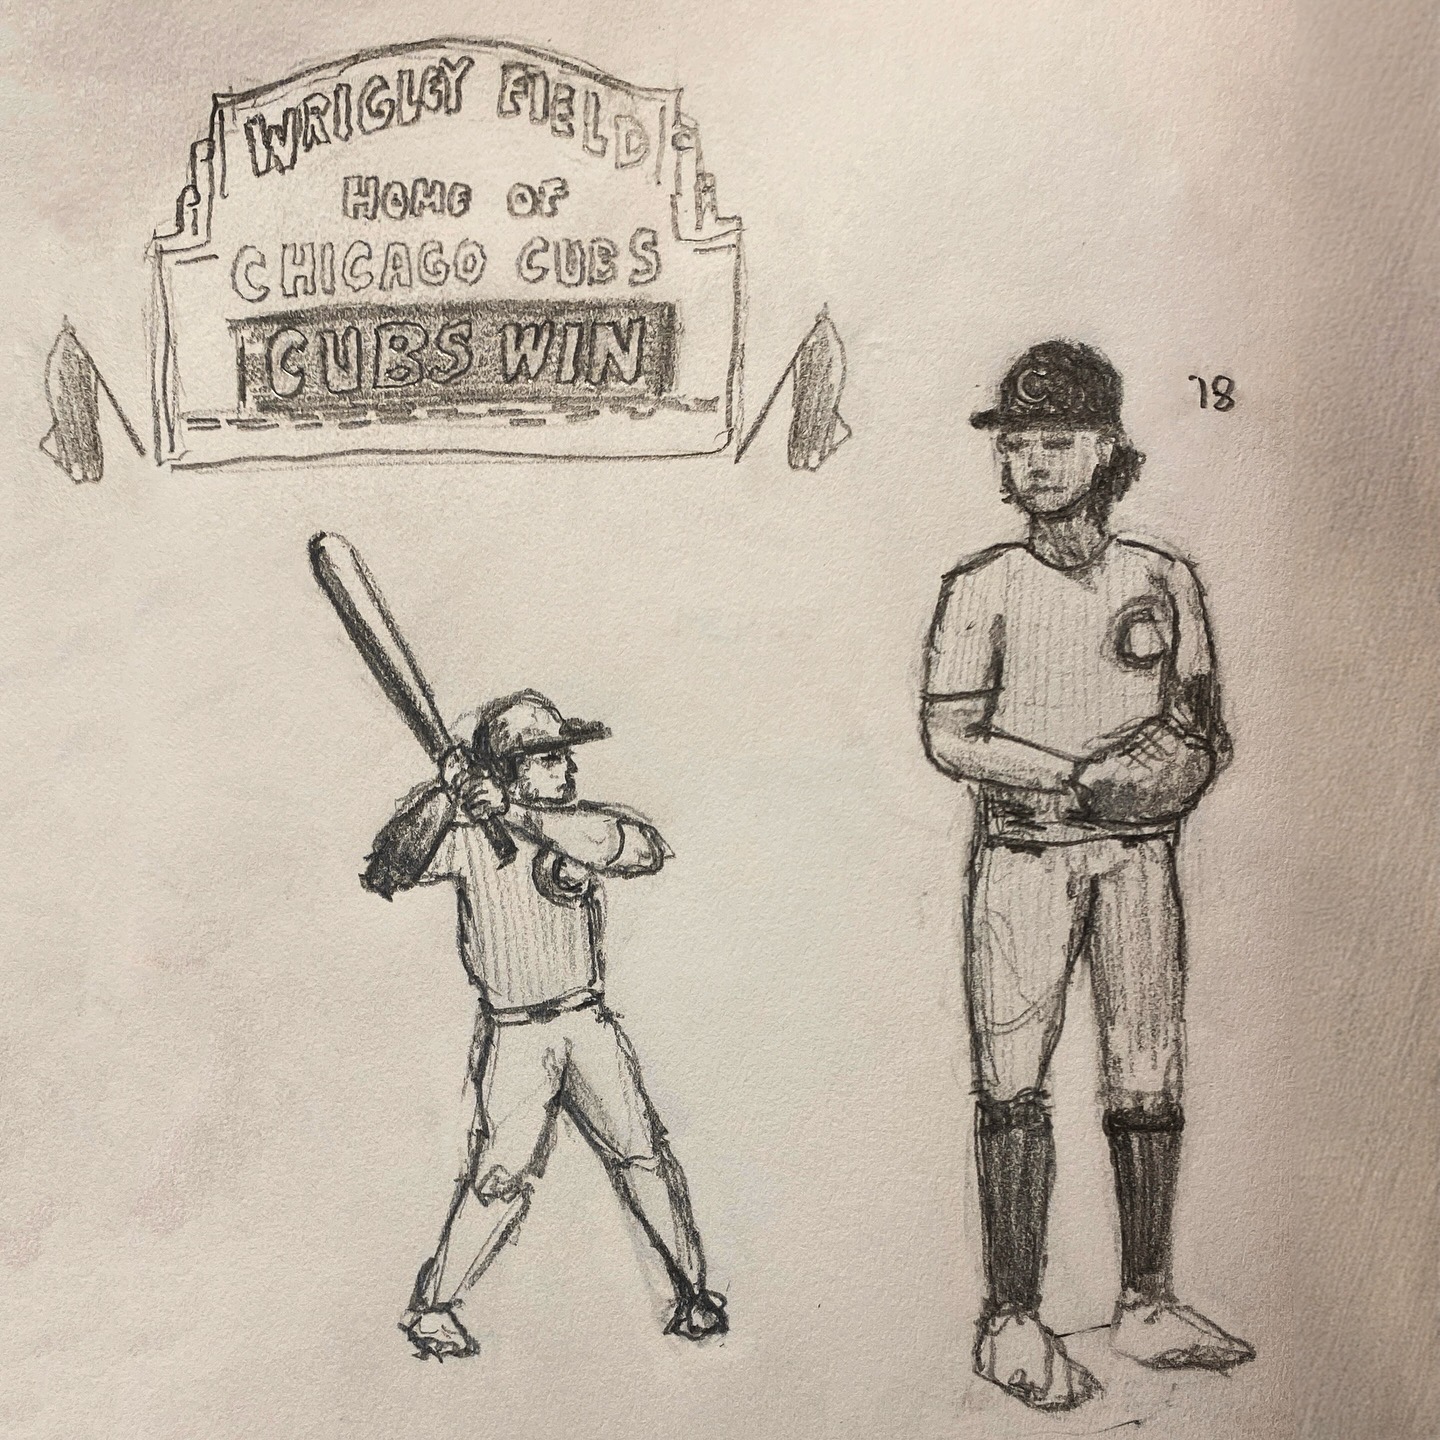 WRIGLEY FIELD
HOME OF
CHICAGO CUBS
CUBS WIN
18
C
C
C